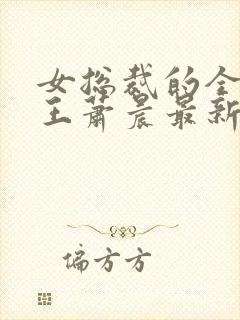 女总裁的全
王萧晨最新
偏方方